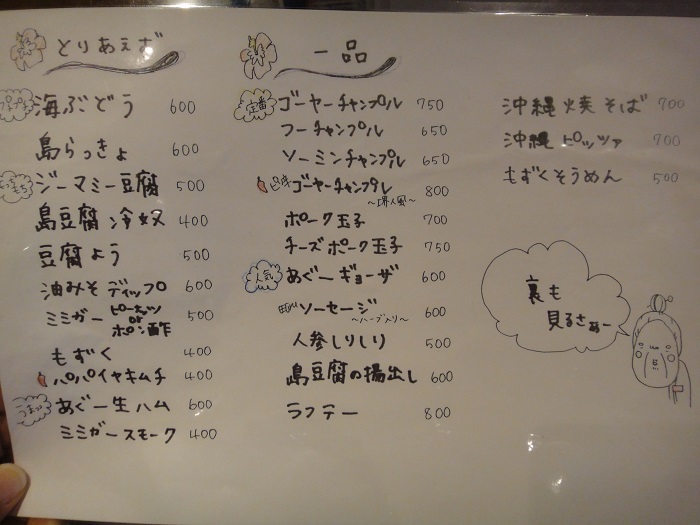 とりあえず
プチプチ
海ぶどう 600
島らっきょ 600
もっちもち
ジーマミー豆腐 500
島豆腐 冷奴 400
豆腐よう 500
油みそディップ 600
ミミガー ピーナッツ or ポン酢 500
もずく 400
パパイヤキムチ 400
うまっ
あぐー生ハム 600
ミミガースモーク 400
一品
定番
ゴーヤーチャンプル 750
フーチャンプル 650
ソーミンチャンプル 650
ピリ辛 ゴーヤーチャンプル 800
ポーク玉子 700
チーズポーク玉子 750
人気
あぐーギョーザ 600
ソーセージ 600
～ハーブ入り～
人参しりしり 500
島豆腐の揚出し 600
ラフテー 800
沖縄焼そば 700
沖縄ピッツァ 700
もずくそうめん 500
裏も
見るさぁー